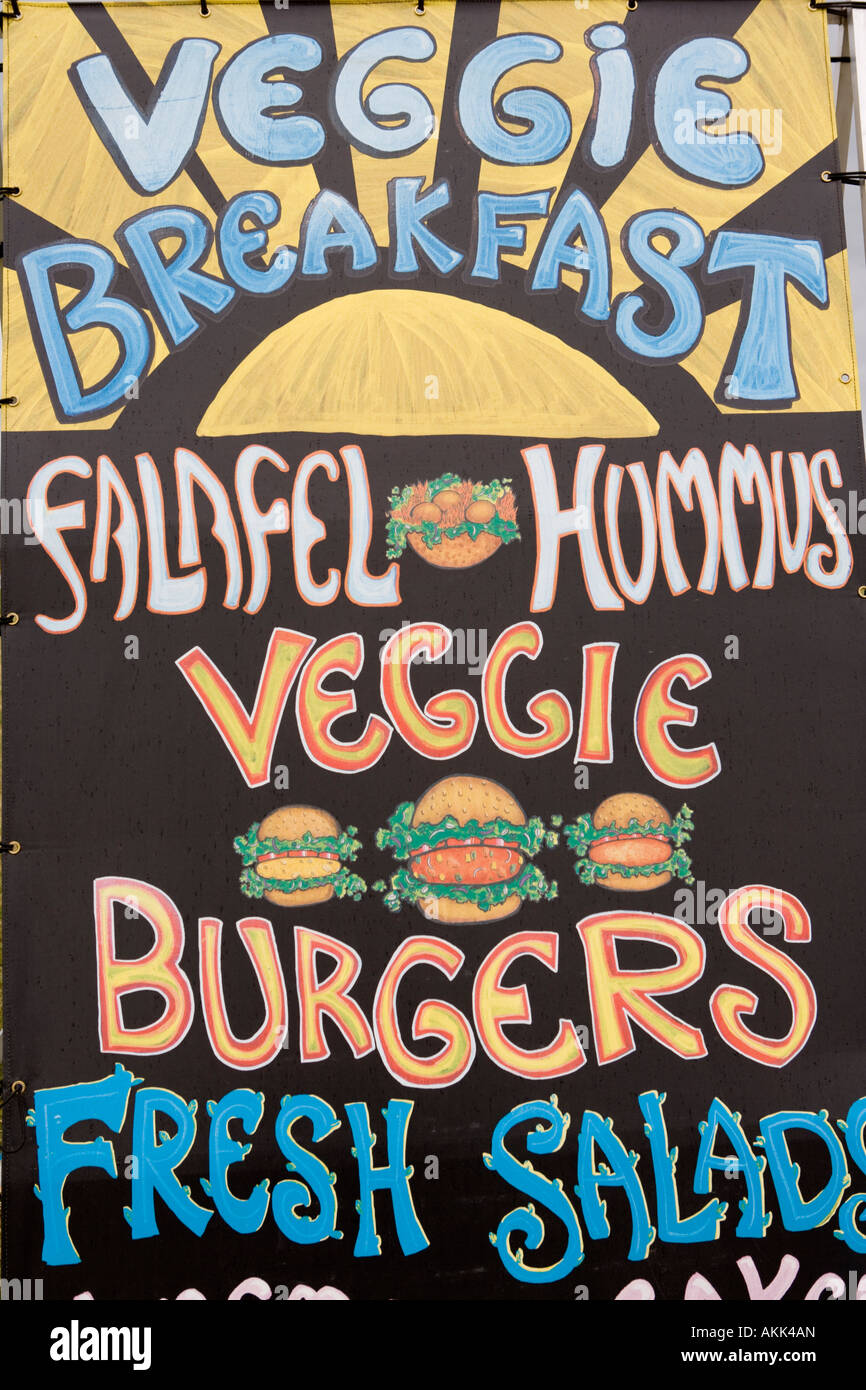 VEGGiE
BREAKFAST
FALAFEL HUMMUS
VEGGIE
BURGERS
FRESH SALADS
alamy
Image ID: AK4AN
www.alamy.com